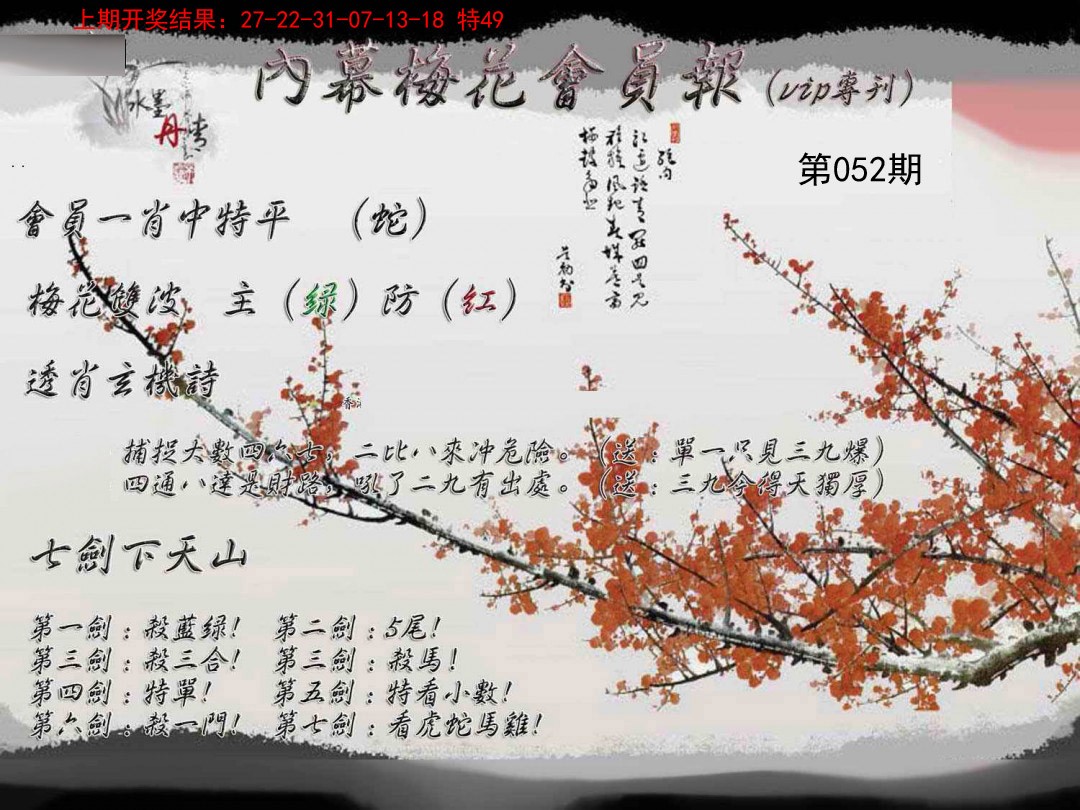 上期开奖结果：27-22-31-07-13-18 特49
內幕梅花會員報（vip專刊）
水墨
丹青
第052期
會員一肖中特平 （蛇）
梅花雙波 主（绿）防（红）
透肖玄機詩
捕捉大數四六七，二比八來沖危險。（送：單一只見三九爆）
四通八達是財路，吼了二九有出處。（送：三九今得天獨厚）
七劍下天山
第一劍：殺藍绿！ 第二劍：5尾！
第三劍：殺三合！ 第三劍：殺馬！
第四劍：特單！ 第五劍：特看小數！
第六劍：殺一門！ 第七劍：看虎蛇馬雞！